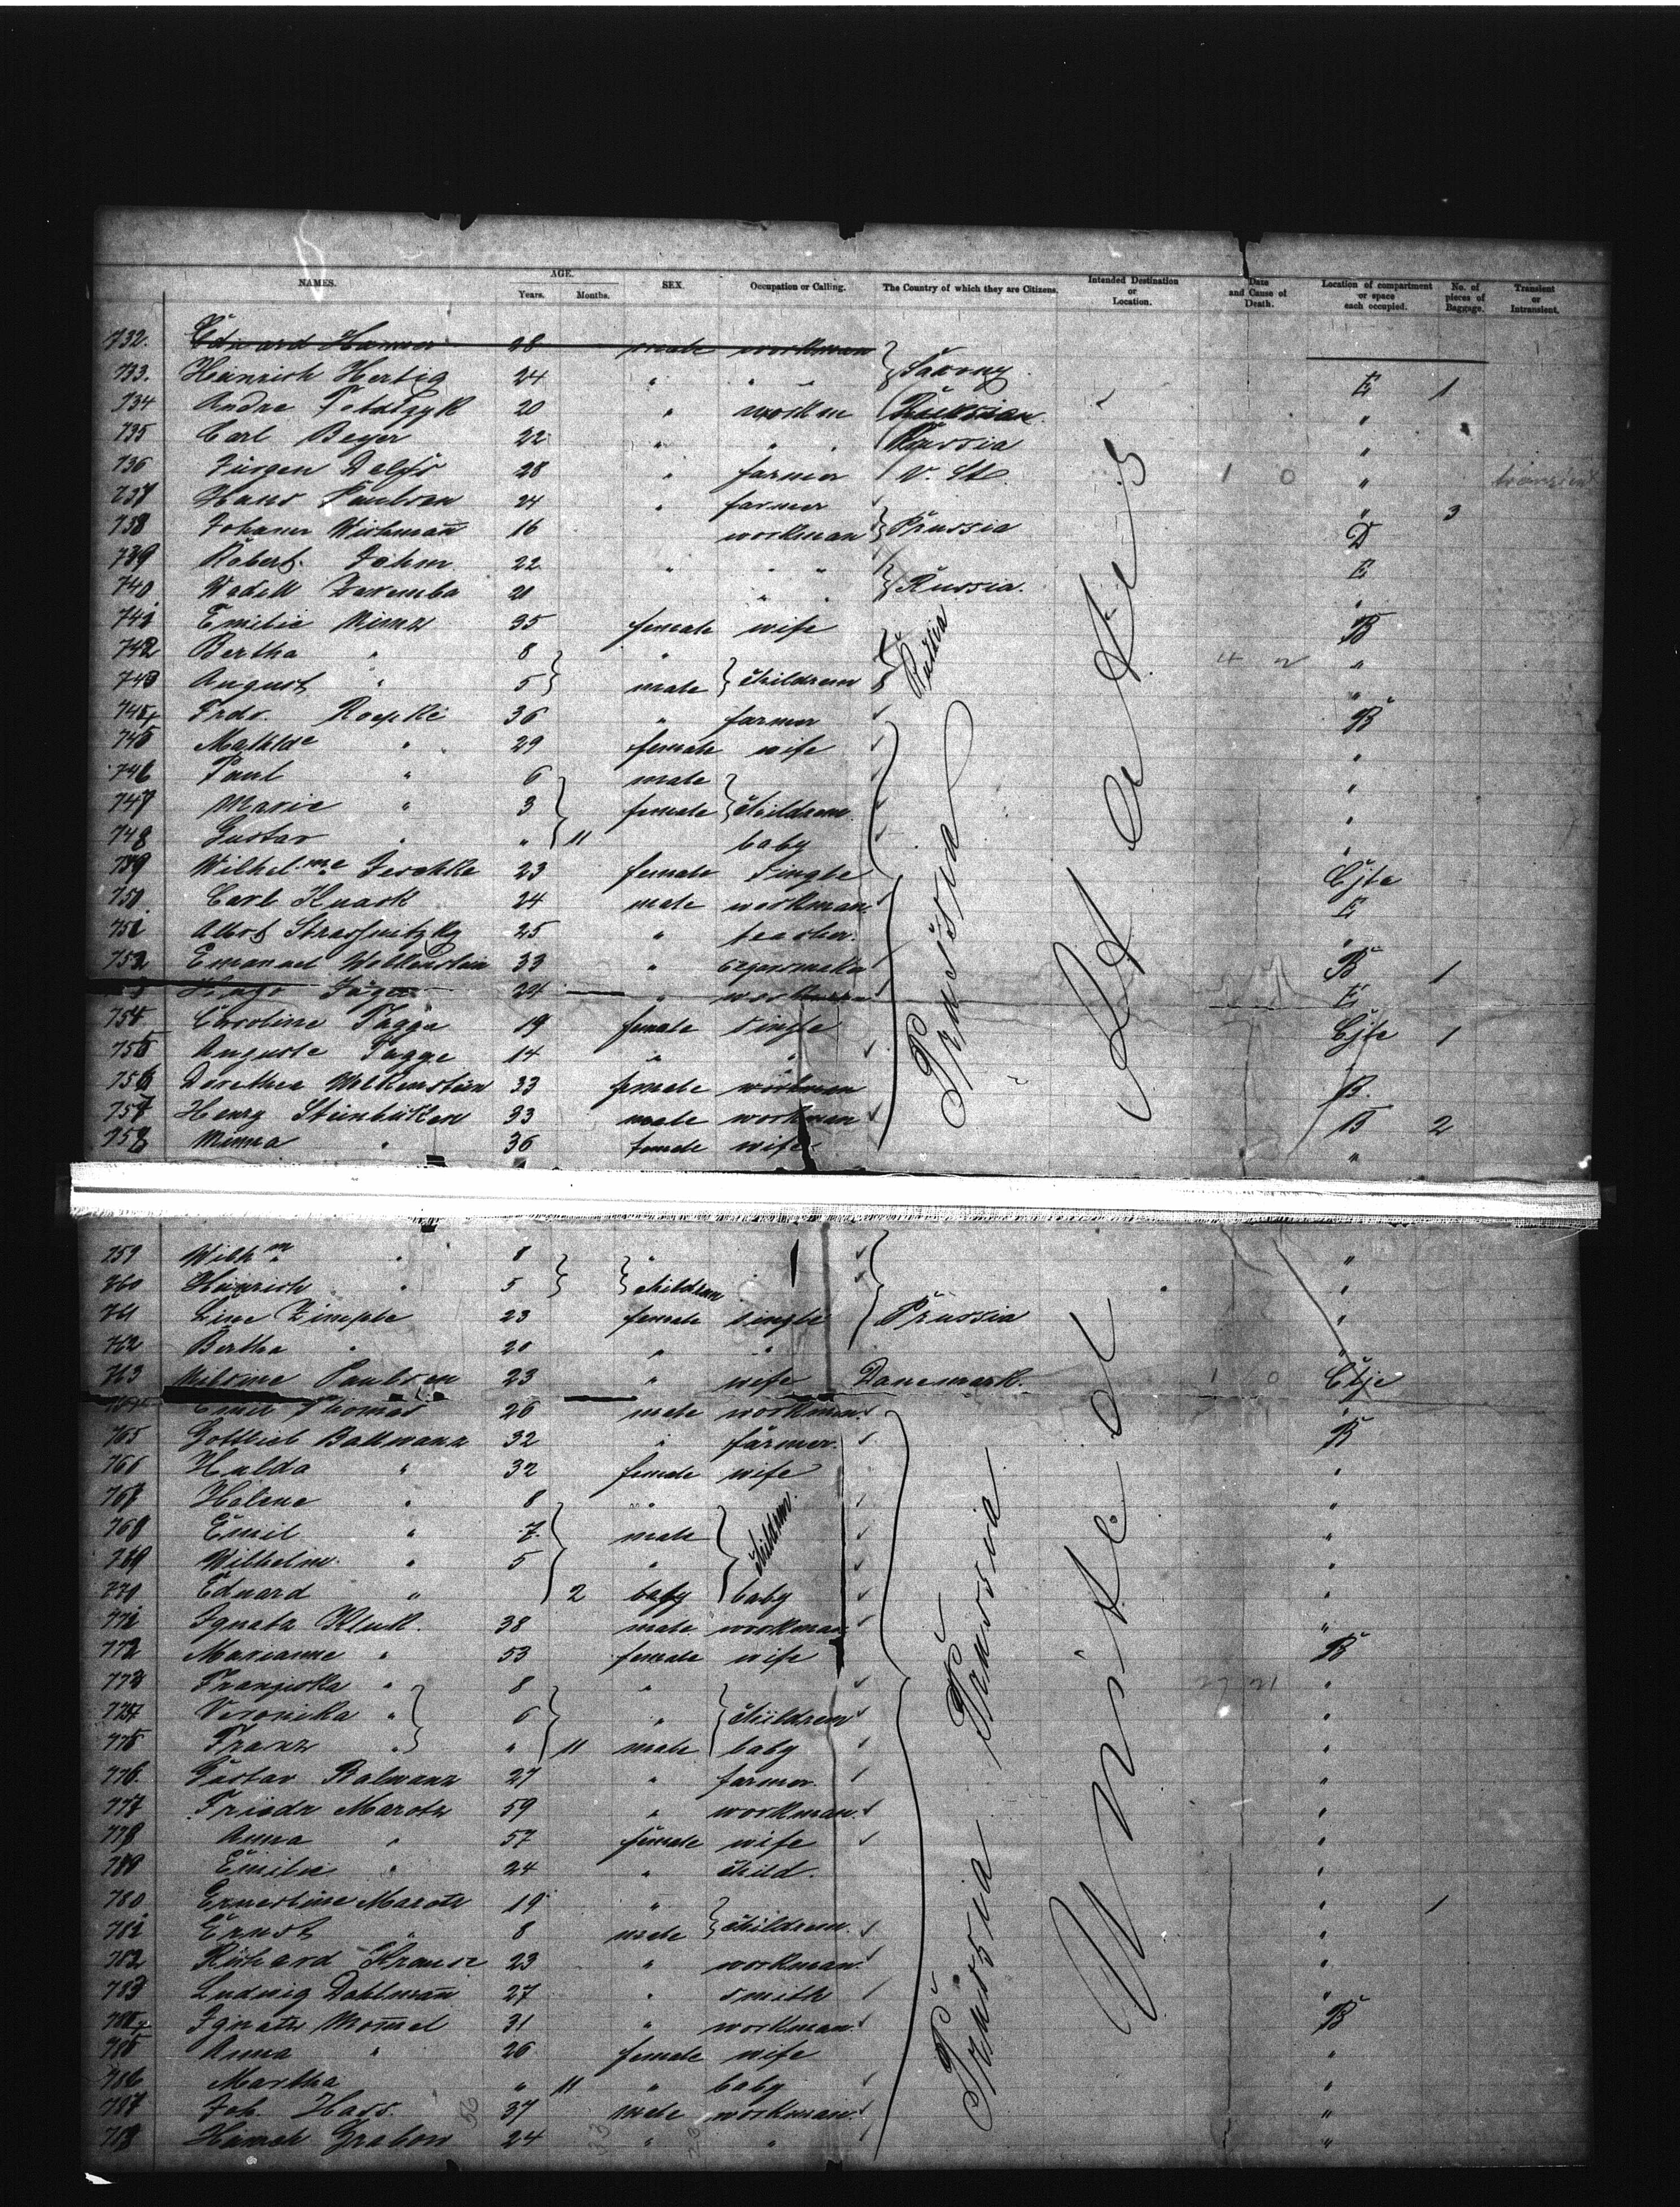 NAMES. AGE. Years. Months. SEX. Occupation or Calling. The Country of which they are Citizens. Intended Destination or Location. Date and Cause of Death. Location of compartment or space each occupied. No. of pieces of Baggage. Transient or Intransient.
732. Eduard 28 male workman
733. Heinrich Hertig 24 " " " Saxony E 1
734 Andre 20 " workm Russian "
735 Carl Beyer 22 " " Russia "
736 Jürgen Delfs 28 " farmer U. St. 1 0 " transient
737 Hans Paulsen 24 " farmer " 3
738 Johann Wichman̄ 16 workman Prussia D
739 Robert Johm 22 " " " E
740 Zaremba 21 " " Russia. "
741 Emilie 35 female wife B
742 Bertha " 8 " Russia 4 2 "
743 August " 5 male children "
744 Frdr. Roepke 36 " farmer B
745 Mathilde " 29 female wife "
746 Paul " 6 male "
747 Marie " 3 female children "
748 Gustav " " 11 baby "
749 Wilhel.me Jeschke 23 female single Cjte
750 Carl Knack 24 male workman E
751 Albert 25 " teacher. "
752 Emanuel Wolkenstein 33 " B 1
Hugo 24 " workman E
754 Caroline Tagge 19 female single Cjte 1
755 Auguste Tagge 14 " "
756 Dorothea Wolkenstein 33 female B.
757 Henry Steinbüken 33 male workman B 2
758 Minna " 36 female wife "
Prussia
759 Wilhm " 8 " "
760 Heinrich " 5 children "
761 Line Zimple 23 female single Prussia "
762 Bertha " 20 " " "
763 Paulsen 23 " wife Danemark. 1 0 Ctje
Emil Thomas 26 male workman. "
765 Gottlieb Ballmanz 32 " farmer. B
766 Hulda " 32 female wife "
767 Helene " 8 " "
768 Emil " 7 male children. "
769 Wilhelm " 5 " "
770 Eduard " 2 baby baby "
771 Ignatz Kluk. 38 male workman "
772 Marianne " 53 female wife B
773 Franziska " 8 " 27 21 "
774 Veronika " 6 " children "
775 Franz " " 11 male baby "
776. Gustav Balmanz 27 " farmer. "
777 Friedr Marotz 59 " workman. "
778 Anna " 57 female wife "
789 Emilie " 24 " child. "
780 Ernestine Marotz 19 " " 1
781 Ernst " 8 male children. "
782 Richard Krause 23 " workman. "
783 Ludwig Dahlman̄ 27 " smith "
784 Ignatz 31 " workman. B
785 Anna " 26 female wife "
786 Martha " 11 " baby "
787 Joh. Hass. 37 male workman. "
788 Heinrich Grabow 24 " " "
Prussia Prussia
United States